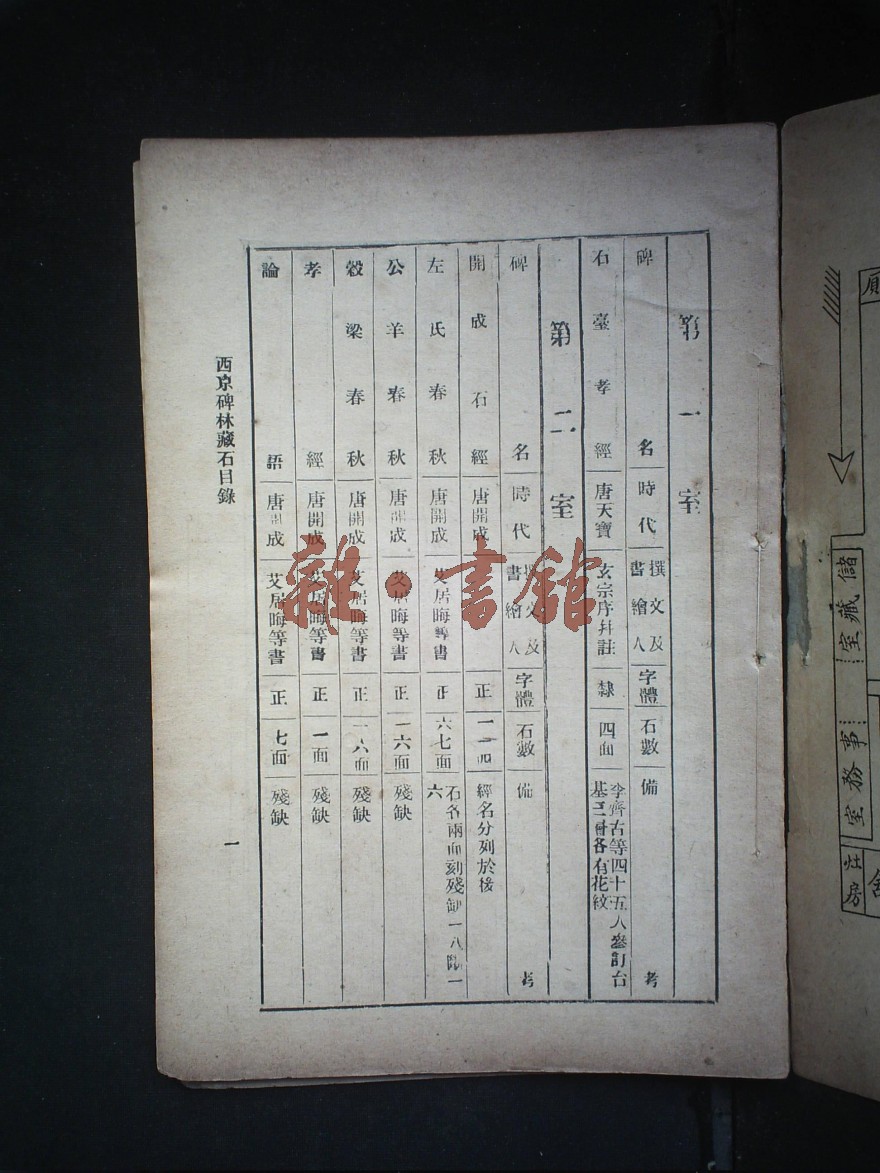 第一室
碑名 時代 撰文及書繪人 字體 石數 備考
石臺孝經 唐天寶 玄宗序并註 隸 四面 李齊古等四十五人參訂台基三層各有花紋
第二室
碑名 時代 撰文及書繪人 字體 石數 備考
開成石經 唐開成 正 經名分列於後
左氏春秋 唐開成 艾居晦等書 正 六七面 石各兩面刻殘缺
公羊春秋 唐開成 艾居晦等書 正 一六面 殘缺
穀梁春秋 唐開成 艾居晦等書 正 一六面 殘缺
孝經 唐開成 艾居晦等書 正 一面 殘缺
論語 唐開成 艾居晦等書 正 七面 殘缺
西京碑林藏石目錄
一
雜·書館
儲藏室
事務室
灶房